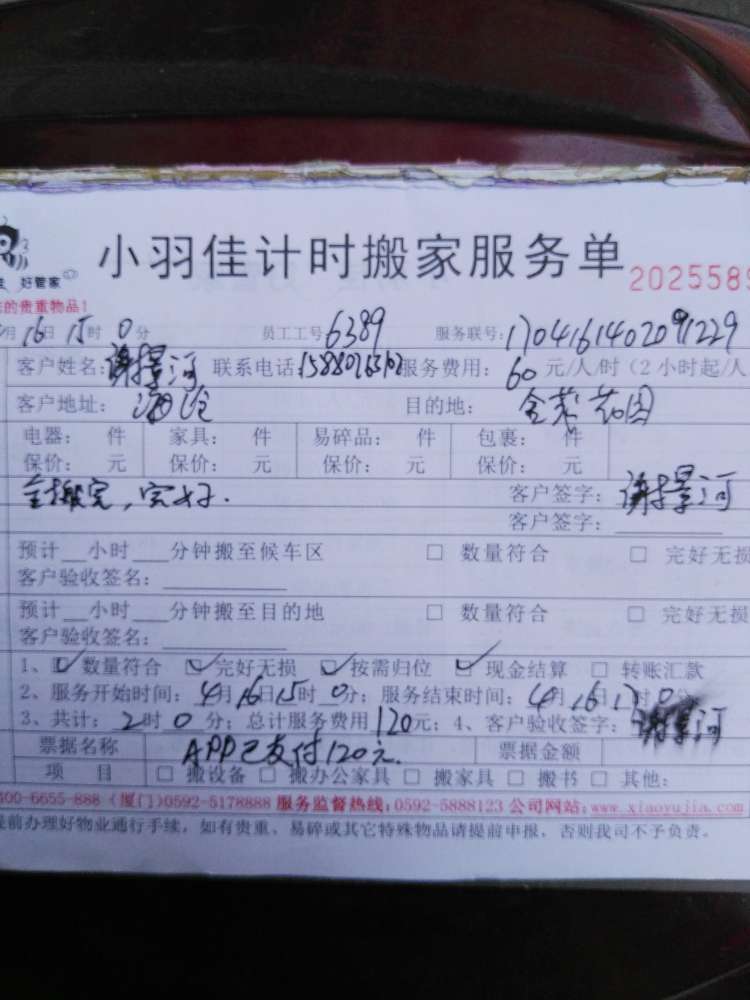 小羽佳计时搬家服务单 2025589
好管家
的贵重物品！
月16日15时0分 员工工号6389 服务联号:1704161402091229
客户姓名:谢景河 联系电话: 服务费用：60元/人/时（2小时起/人
客户地址：海沧 目的地：
电器： 件 家具： 件 易碎品： 件 包裹： 件
保价： 元 保价： 元 保价： 元 保价： 元
全搬完，完好. 客户签字：谢景河
客户签字：
预计__小时___分钟搬至候车区 □ 数量符合 □ 完好无损
客户验收签名：
预计__小时___分钟搬至目的地 □ 数量符合 □ 完好无损
客户验收签名：
1、☑数量符合 ☑完好无损 ☑按需归位 ☑现金结算 □ 转账汇款
2、服务开始时间：4月16日15时0分；服务结束时间：4月16日17时0分
3、共计：2时0分；总计服务费用120元；4、客户验收签字：谢景河
票据名称 APP已支付120元. 票据金额
项 目 □ 搬设备 □ 搬办公家具 □ 搬家具 □ 搬书 □ 其他：
400-6655-888（厦门）0592-5178888 服务监督热线：0592-5888123 公司网站：www.xiaoyujia.com
提前办理好物业通行手续，如有贵重、易碎或其它特殊物品请提前申报，否则我司不予负责。